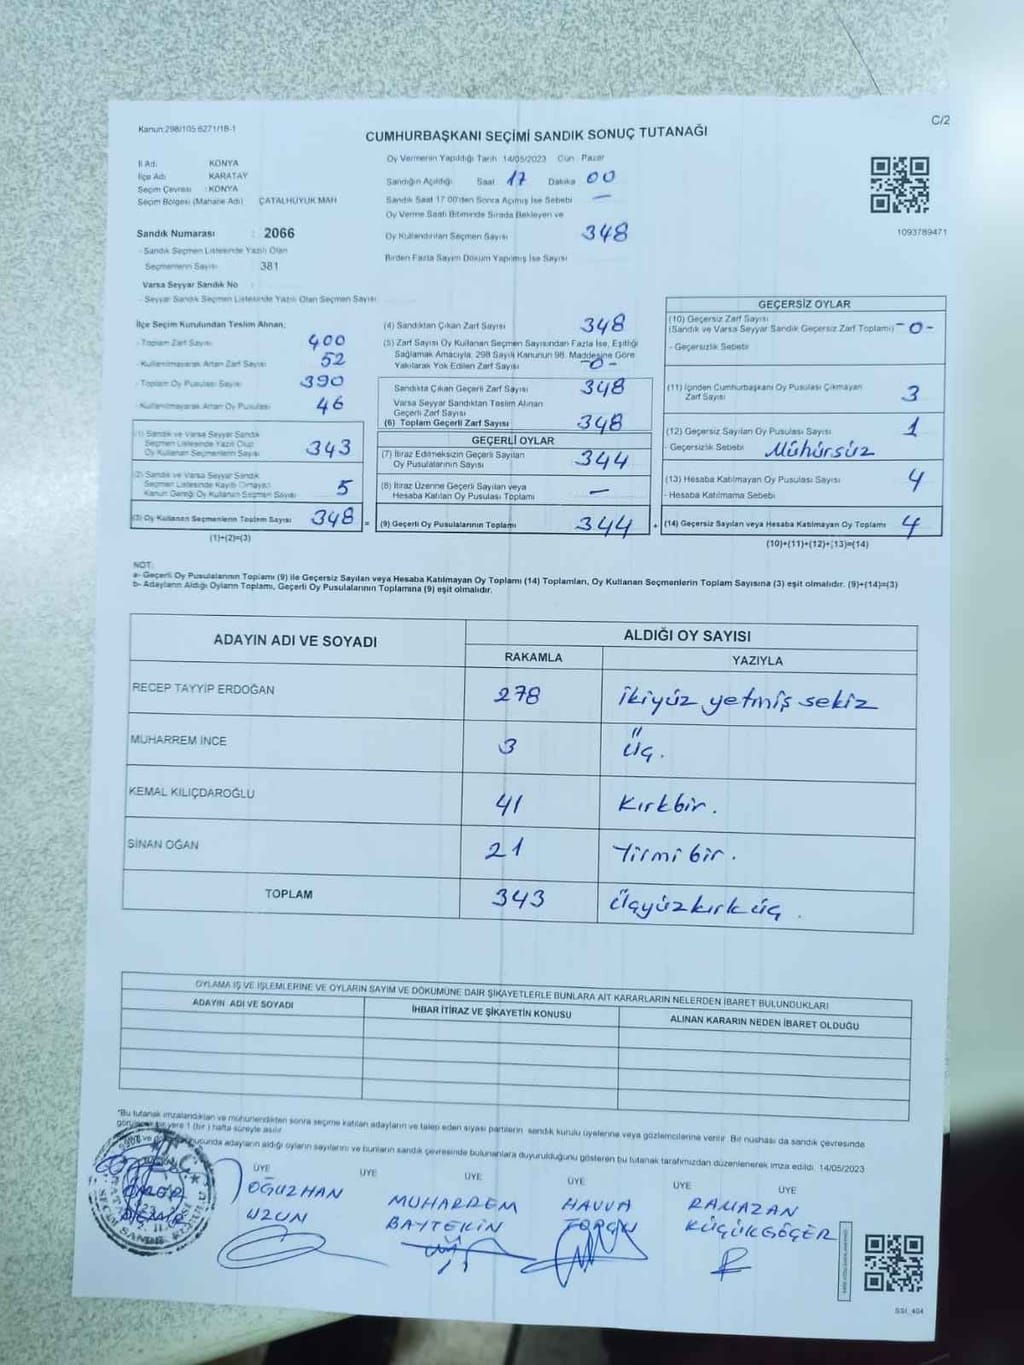 Kanun:298/105 6271/18-1
C/2
CUMHURBAŞKANI SEÇİMİ SANDIK SONUÇ TUTANAĞI
İl Adı: KONYA
İlçe Adı KARATAY
Seçim Çevresi : KONYA
Seçim Bölgesi (Mahalle Adı) ÇATALHÜYÜK MAH
Sandık Numarası : 2066
- Sandık Seçmen Listesinde Yazılı Olan
Seçmenlerin Sayısı 381
Varsa Seyyar Sandık No
- Seyyar Sandık Seçmen Listesinde Yazılı Olan Seçmen Sayısı
Oy Vermenin Yapıldığı Tarih 14/05/2023 Gün Pazar
Sandığın Açıldığı Saat 17 Dakika 00
Sandık Saat 17.00'den Sonra Açılmış İse Sebebi —
Oy Verme Saati Bitiminde Sırada Bekleyen ve
Oy Kullandırılan Seçmen Sayısı 348
Birden Fazla Sayım Döküm Yapılmış İse Sayısı
1093789471
İlçe Seçim Kurulundan Teslim Alınan;
- Toplam Zarf Sayısı 400
- Kullanılmayarak Artan Zarf Sayısı 52
- Toplam Oy Pusulası Sayısı 390
- Kullanılmayarak Artan Oy Pusulası 46
(1) Sandık ve Varsa Seyyar Sandık
Seçmen Listesinde Yazılı Olup
Oy Kullanan Seçmenlerin Sayısı 343
(2) Sandık ve Varsa Seyyar Sandık
Seçmen Listesinde Kayıtlı Olmayan
Kanun Gereği Oy Kullanan Seçmen Sayısı 5
(3) Oy Kullanan Seçmenlerin Toplam Sayısı 348 =
(1)+(2)=(3)
(4) Sandıktan Çıkan Zarf Sayısı 348
(5) Zarf Sayısı Oy Kullanan Seçmen Sayısından Fazla İse, Eşitliği
Sağlamak Amacıyla; 298 Sayılı Kanunun 98. Maddesine Göre
Yakılarak Yok Edilen Zarf Sayısı -0-
Sandıkta Çıkan Geçerli Zarf Sayısı 348
Varsa Seyyar Sandıktan Teslim Alınan
Geçerli Zarf Sayısı
(6) Toplam Geçerli Zarf Sayısı 348
GEÇERLİ OYLAR
(7) İtiraz Edilmeksizin Geçerli Sayılan
Oy Pusulalarının Sayısı 344
(8) İtiraz Üzerine Geçerli Sayılan veya
Hesaba Katılan Oy Pusulası Toplamı —
(9) Geçerli Oy Pusulalarının Toplamı 344 +
GEÇERSİZ OYLAR
(10) Geçersiz Zarf Sayısı
(Sandık ve Varsa Seyyar Sandık Geçersiz Zarf Toplamı) -0-
- Geçersizlik Sebebi
(11) İçinden Cumhurbaşkanı Oy Pusulası Çıkmayan
Zarf Sayısı 3
(12) Geçersiz Sayılan Oy Pusulası Sayısı 1
- Geçersizlik Sebebi Mühürsüz
(13) Hesaba Katılmayan Oy Pusulası Sayısı 4
- Hesaba Katılmama Sebebi
(14) Geçersiz Sayılan veya Hesaba Katılmayan Oy Toplamı 4
(10)+(11)+(12)+(13)=(14)
NOT:
a- Geçerli Oy Pusulalarının Toplamı (9) ile Geçersiz Sayılan veya Hesaba Katılmayan Oy Toplamı (14) Toplamları, Oy Kullanan Seçmenlerin Toplam Sayısına (3) eşit olmalıdır. (9)+(14)=(3)
b- Adayların Aldığı Oyların Toplamı, Geçerli Oy Pusulalarının Toplamına (9) eşit olmalıdır.
ADAYIN ADI VE SOYADI ALDIĞI OY SAYISI
RAKAMLA YAZIYLA
RECEP TAYYİP ERDOĞAN 278 ikiyüz yetmiş sekiz
MUHARREM İNCE 3 Üç.
KEMAL KILIÇDAROĞLU 41 Kırkbir.
SİNAN OĞAN 21 Yirmi bir.
TOPLAM 343 Üçyüzkırküç.
OYLAMA İŞ VE İŞLEMLERİNE VE OYLARIN SAYIM VE DÖKÜMÜNE DAİR ŞİKAYETLERLE BUNLARA AİT KARARLARIN NELERDEN İBARET BULUNDUKLARI
ADAYIN ADI VE SOYADI İHBAR İTİRAZ VE ŞİKAYETİN KONUSU ALINAN KARARIN NEDEN İBARET OLDUĞU
"Bu tutanak imzalandıktan ve mühürlendikten sonra seçime katılan adayların ve talep eden siyasi partilerin sandık kurulu üyelerine veya gözlemcilerine verilir. Bir nüshası da sandık çevresinde
yere 1 (bir) hafta süreyle asılır
adayların aldığı oyların sayılarını ve bunların sandık çevresinde bulunanlara duyurulduğunu gösteren bu tutanak tarafımızdan düzenlenerek imza edildi. 14/05/2023
ÜYE ÜYE ÜYE ÜYE ÜYE ÜYE
ÖMER DEMİR
OĞUZHAN UZUN
MUHARREM BAYTEKİN
HAVVA
RAMAZAN KÜÇÜKGÖÇER
SSI_404